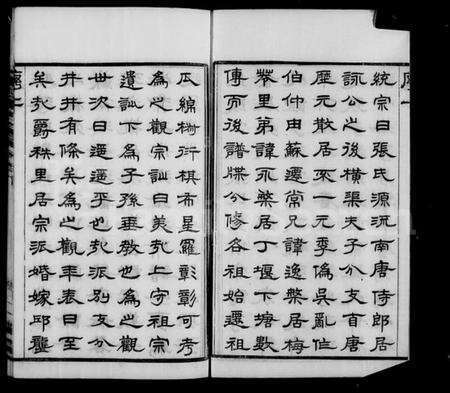 序一
統宗曰張氏源流南唐侍郎居
詠公之後橫渠夫子分支自唐
歷元散居不一元季偽吳亂作
伯仲由蘇遷常兄諱逸槃居梅
里弟諱永槃居丁堰下塘數
傳而後譜牒分修各祖始遷祖
瓜綿椒衍棋布星羅彰彰可考
為之觀宗訓曰美哉上守祖宗
遺訓下為子孫垂教也為之觀
世次曰遷遷乎也哉派別支分
井井有條矣為之觀年表曰至
矣哉爵秩里居宗派婚嫁邱壟
序二